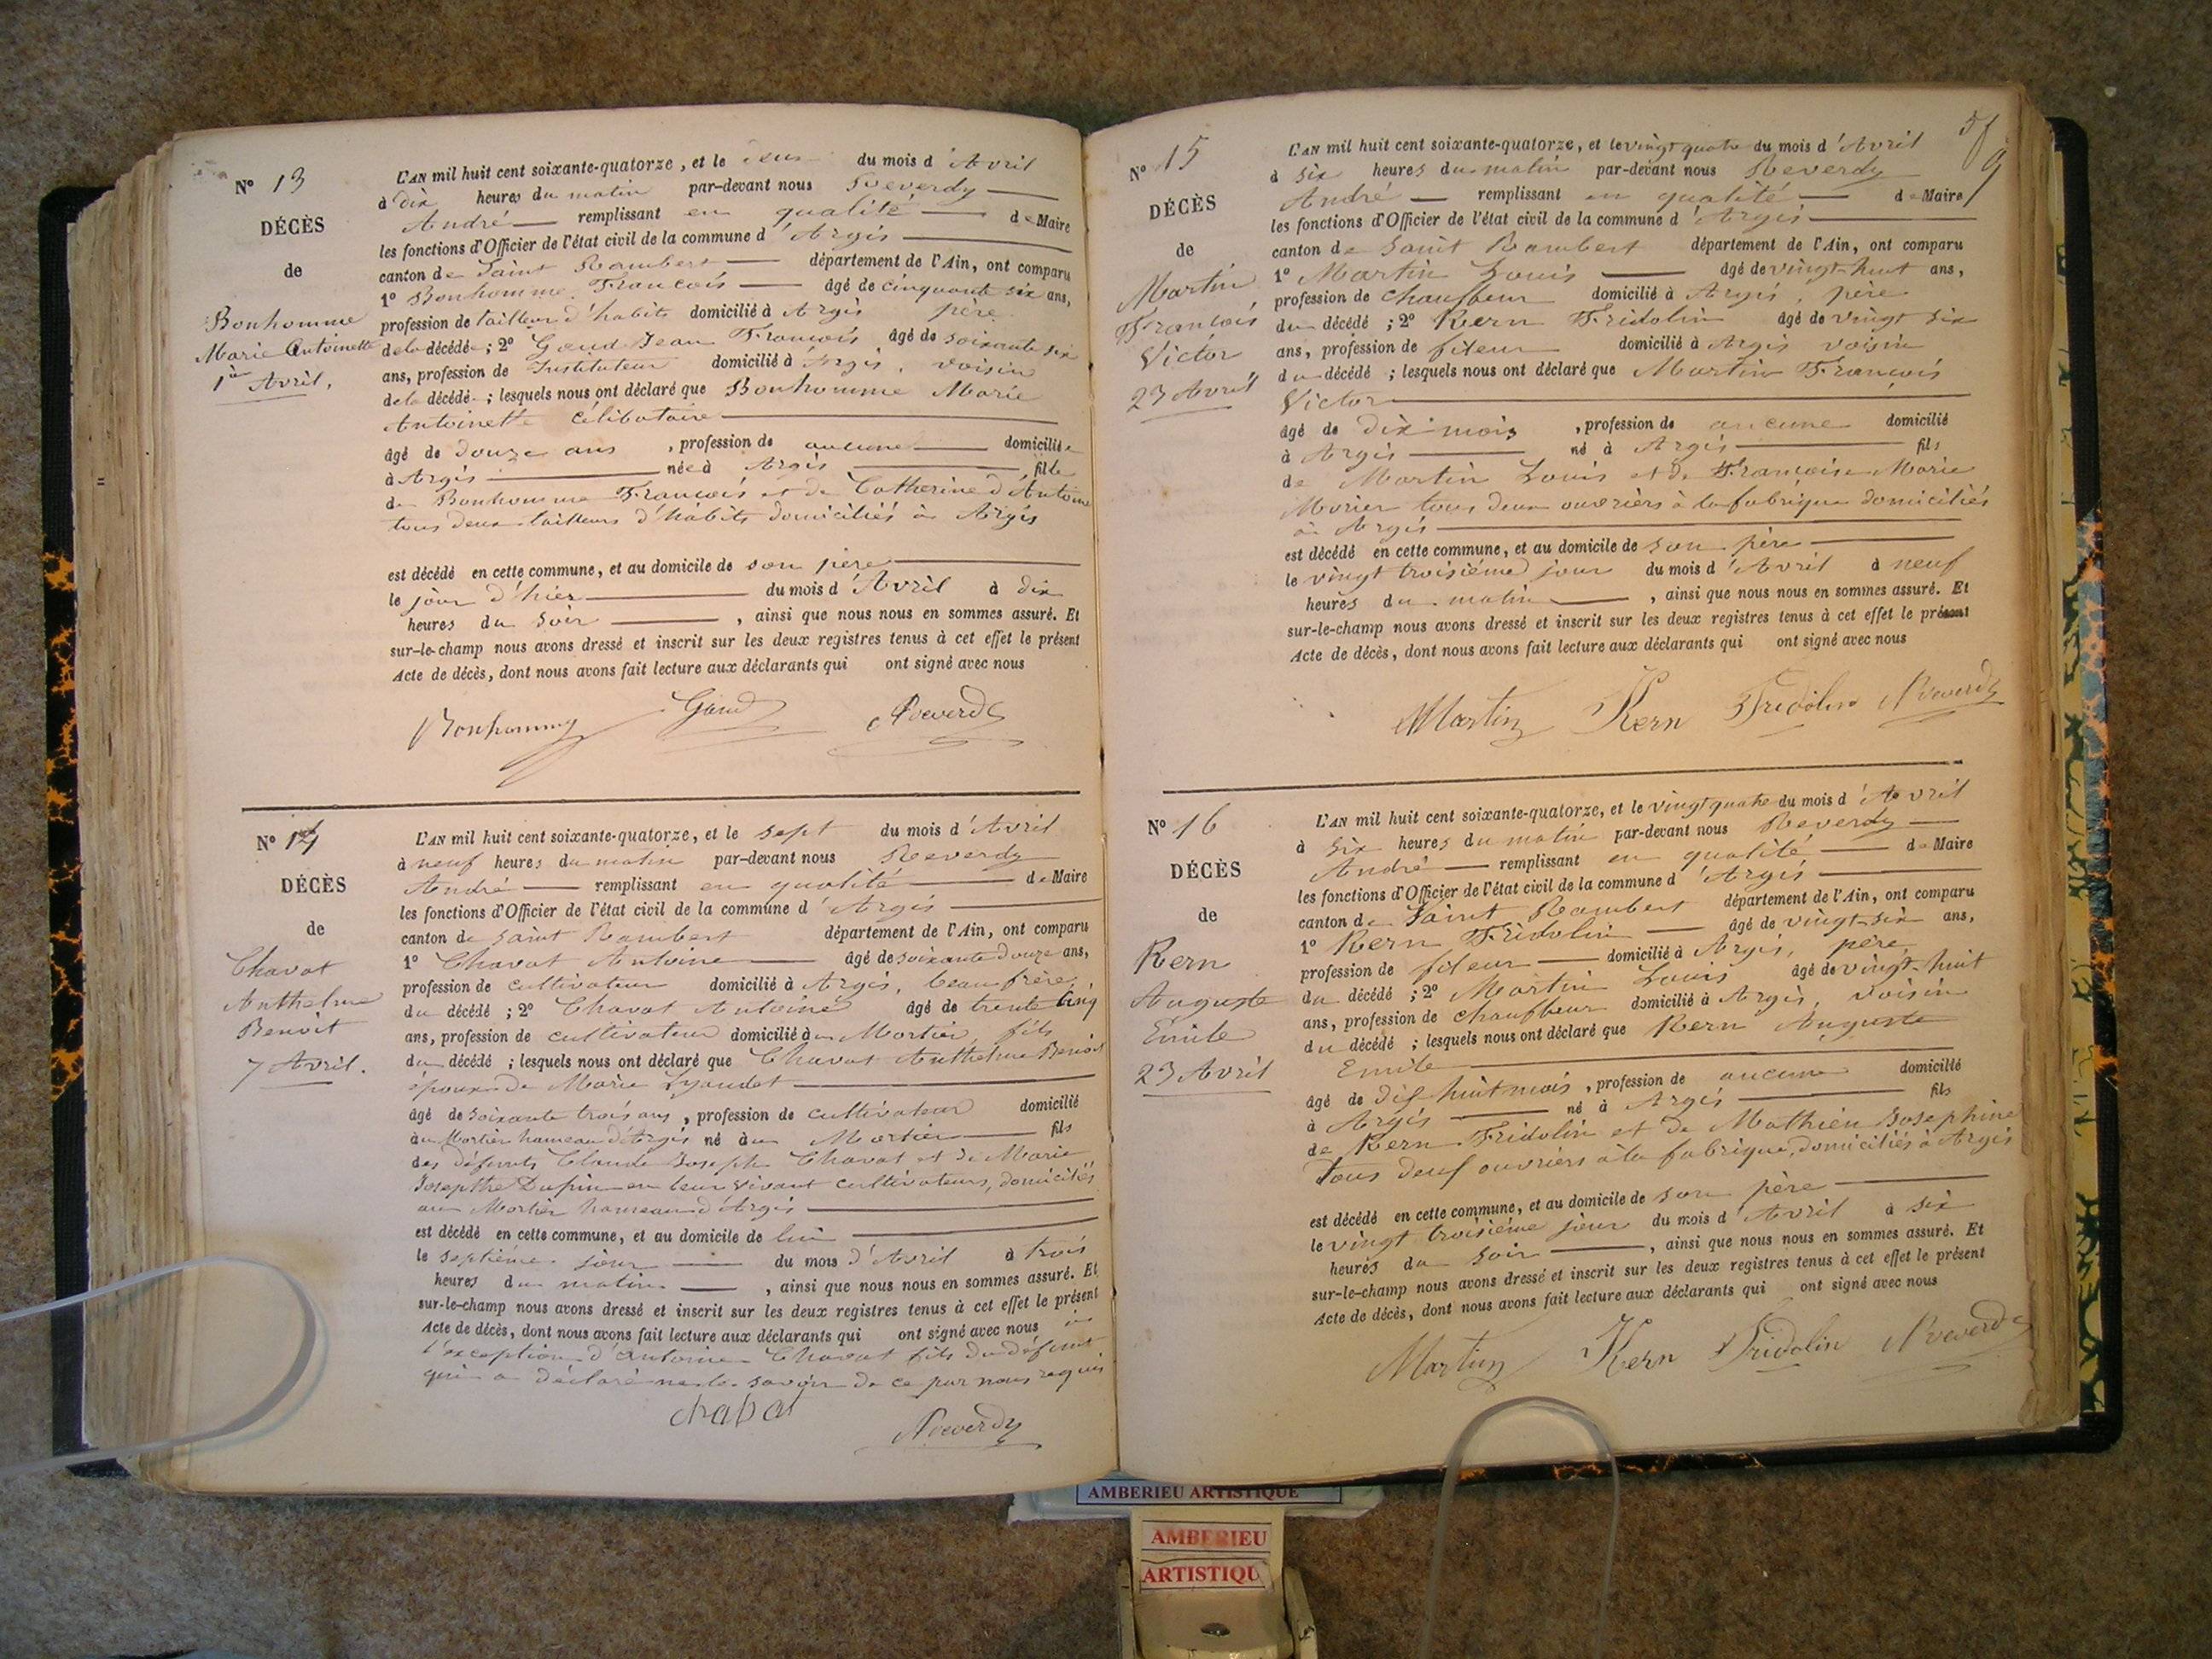 N° 13
DÉCÈS
de
Bonhomme
Marie Antoinette
1er Avril.
L'AN mil huit cent soixante-quatorze, et le deux du mois d'Avril
à dix heures du matin par-devant nous Reverdy
André remplissant en qualité de Maire
les fonctions d'Officier de l'état civil de la commune d'Argis
canton de Saint Rambert département de l'Ain, ont comparu
1° Bonhomme François âgé de cinquante six ans,
profession de tailleur d'habits domicilié à Argis, père
de la décédée ; 2° Goud Jean François âgé de soixante six
ans, profession de Instituteur domicilié à Argis, voisin
de la décédée ; lesquels nous ont déclaré que Bonhomme Marie
Antoinette célibataire
âgé de douze ans, profession de aucune domiciliée
à Argis née à Argis, fille
de Bonhomme François et de Catherine d'Antoine
tous deux tailleurs d'habits domiciliés à Argis
est décédé en cette commune, et au domicile de son père
le jour d'hier du mois d'Avril à dix
heures du soir, ainsi que nous nous en sommes assuré. Et
sur-le-champ nous avons dressé et inscrit sur les deux registres tenus à cet effet le présent
Acte de décès, dont nous avons fait lecture aux déclarants qui ont signé avec nous
Bonhomme Goud Reverdy
N° 14
DÉCÈS
de
Chavat
Anthelme
Benoit
7 Avril.
L'AN mil huit cent soixante-quatorze, et le sept du mois d'Avril
à neuf heures du matin par-devant nous Reverdy
André remplissant en qualité de Maire
les fonctions d'Officier de l'état civil de la commune d'Argis
canton de Saint Rambert département de l'Ain, ont comparu
1° Chavat Antoine âgé de soixante douze ans,
profession de cultivateur domicilié à Argis, beau frère
du décédé ; 2° Chavat Antoine âgé de trente cinq
ans, profession de cultivateur domicilié au Mortier, fils
du décédé ; lesquels nous ont déclaré que Chavat Anthelme Benoit
époux de Marie Lyaudet
âgé de soixante trois ans, profession de cultivateur domicilié
au Mortier hameau d'Argis né au Mortier fils
des défunts Claude Joseph Chavat et de Marie
Josepthe Dupin en leur vivant cultivateurs, domiciliés
au Mortier hameau d'Argis
est décédé en cette commune, et au domicile de lui
le septième jour du mois d'Avril à trois
heures du matin, ainsi que nous nous en sommes assuré. Et
sur-le-champ nous avons dressé et inscrit sur les deux registres tenus à cet effet le présent
Acte de décès, dont nous avons fait lecture aux déclarants qui ont signé avec nous à
l'exception d'Antoine Chavat fils du défunt
qui a déclaré ne le savoir de ce par nous requis
chabat Reverdy
N° 15
DÉCÈS
de
Martin
François
Victor
23 Avril
L'AN mil huit cent soixante-quatorze, et le vingt quatre du mois d'Avril
à six heures du matin par-devant nous Reverdy
André remplissant en qualité de Maire
les fonctions d'Officier de l'état civil de la commune d'Argis
canton de Saint Rambert département de l'Ain, ont comparu
1° Martin Louis âgé de vingt-huit ans,
profession de chauffeur domicilié à Argis, père
du décédé ; 2° Kern Fridolin âgé de vingt six
ans, profession de fileur domicilié à Argis voisin
du décédé ; lesquels nous ont déclaré que Martin François
Victor
âgé de dix mois, profession de aucune domicilié
à Argis né à Argis fils
de Martin Louis et de Françoise Marie
Morier tous deux ouvriers à la fabrique domiciliés
à Argis
est décédé en cette commune, et au domicile de son père
le vingt troisième jour du mois d'Avril à neuf
heures du matin, ainsi que nous nous en sommes assuré. Et
sur-le-champ nous avons dressé et inscrit sur les deux registres tenus à cet effet le présent
Acte de décès, dont nous avons fait lecture aux déclarants qui ont signé avec nous
Martin Kern Fridolin Reverdy
N° 16
DÉCÈS
de
Kern
Auguste
Emile
23 Avril
L'AN mil huit cent soixante-quatorze, et le vingt quatre du mois d'Avril
à six heures du matin par-devant nous Reverdy
André remplissant en qualité de Maire
les fonctions d'Officier de l'état civil de la commune d'Argis
canton de Saint Rambert département de l'Ain, ont comparu
1° Kern Fridolin âgé de vingt-six ans,
profession de fileur domicilié à Argis, père
du décédé ; 2° Martin Louis âgé de vingt-huit
ans, profession de chauffeur domicilié à Argis, voisin
du décédé ; lesquels nous ont déclaré que Kern Auguste
Emile
âgé de dix huit mois, profession de aucune domicilié
à Argis né à Argis fils
de Kern Fridolin et de Mathieu Josephine
Tous deux ouvriers à la fabrique, domiciliés à Argis
est décédé en cette commune, et au domicile de son père
le vingt troisième jour du mois d'Avril à six
heures du soir, ainsi que nous nous en sommes assuré. Et
sur-le-champ nous avons dressé et inscrit sur les deux registres tenus à cet effet le présent
Acte de décès, dont nous avons fait lecture aux déclarants qui ont signé avec nous
Martin Kern Fridolin Reverdy
AMBERIEU ARTISTIQUE
AMBERIEU
ARTISTIQU